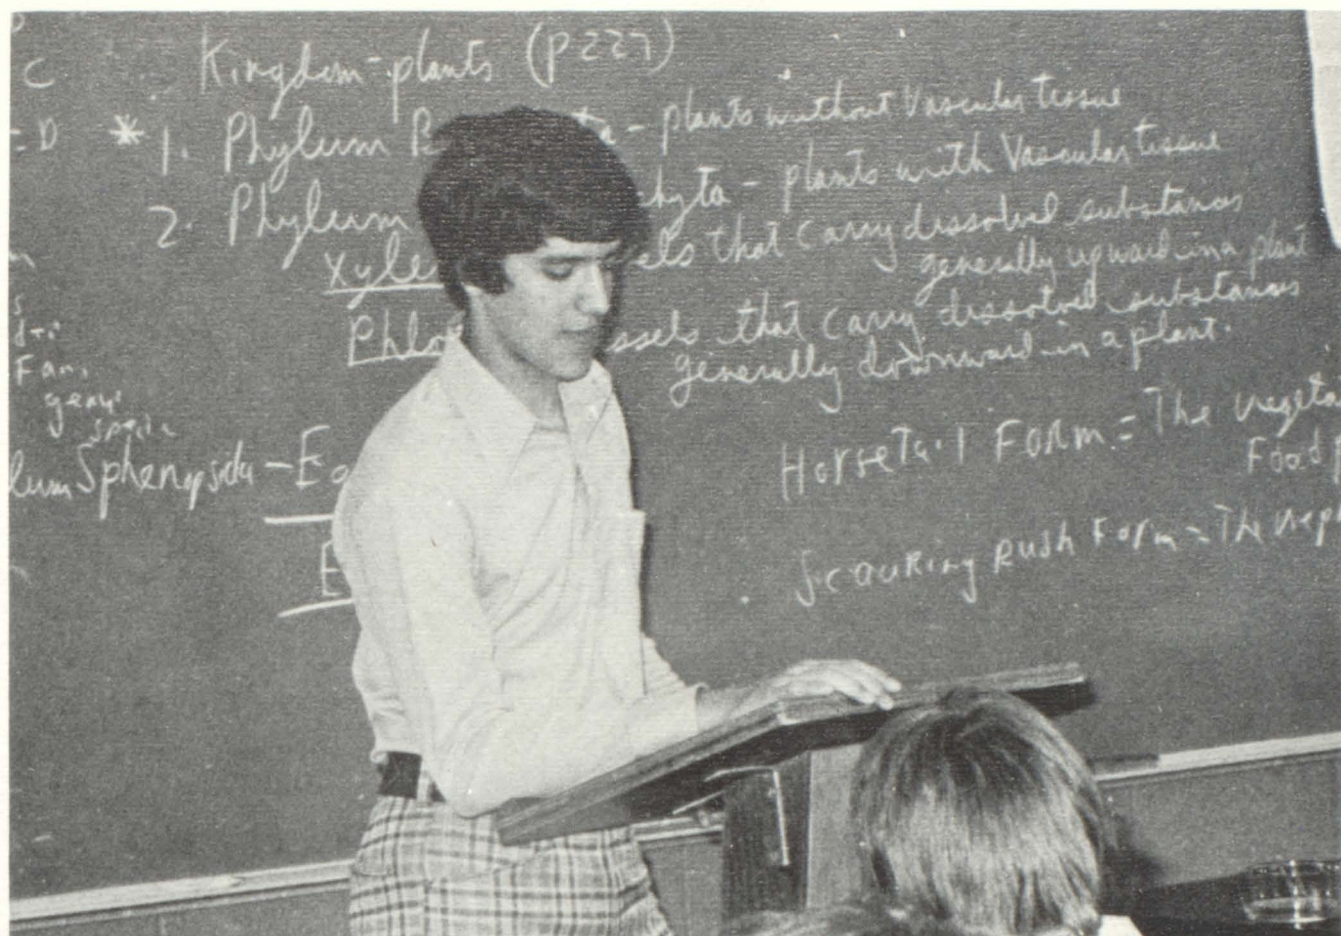 C
Kingdom - plants (p227)
= D
* 1. Phylum B ta - plants without Vascular tissue
2. Phylum hyta - plants with Vascular tissue
Xyle els that carry dissolved substances
generally upward in a plant
Phlo ssels that carry dissolved substances
generally downward in a plant.
Fam
lum Sphenopsida - E
Horsetail Form = The vegeta
Food
E
Scouring Rush Form = The